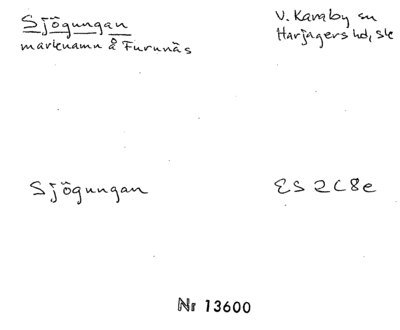 Sjögungan
V. Karaby sn
marknamn å Furunäs
Harjagers hd, Sk
Sjögungan
ES 2C8e
Nr 13600